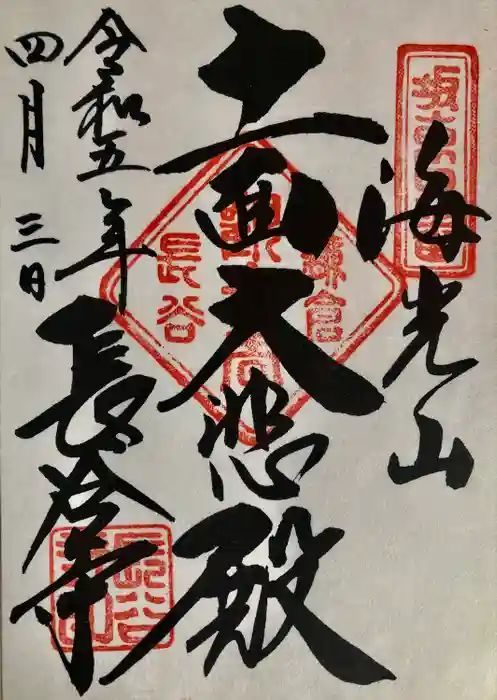 坂東四番
海光山
十一面大悲殿
鎌倉
長谷
令和五年
四月三日
長谷寺